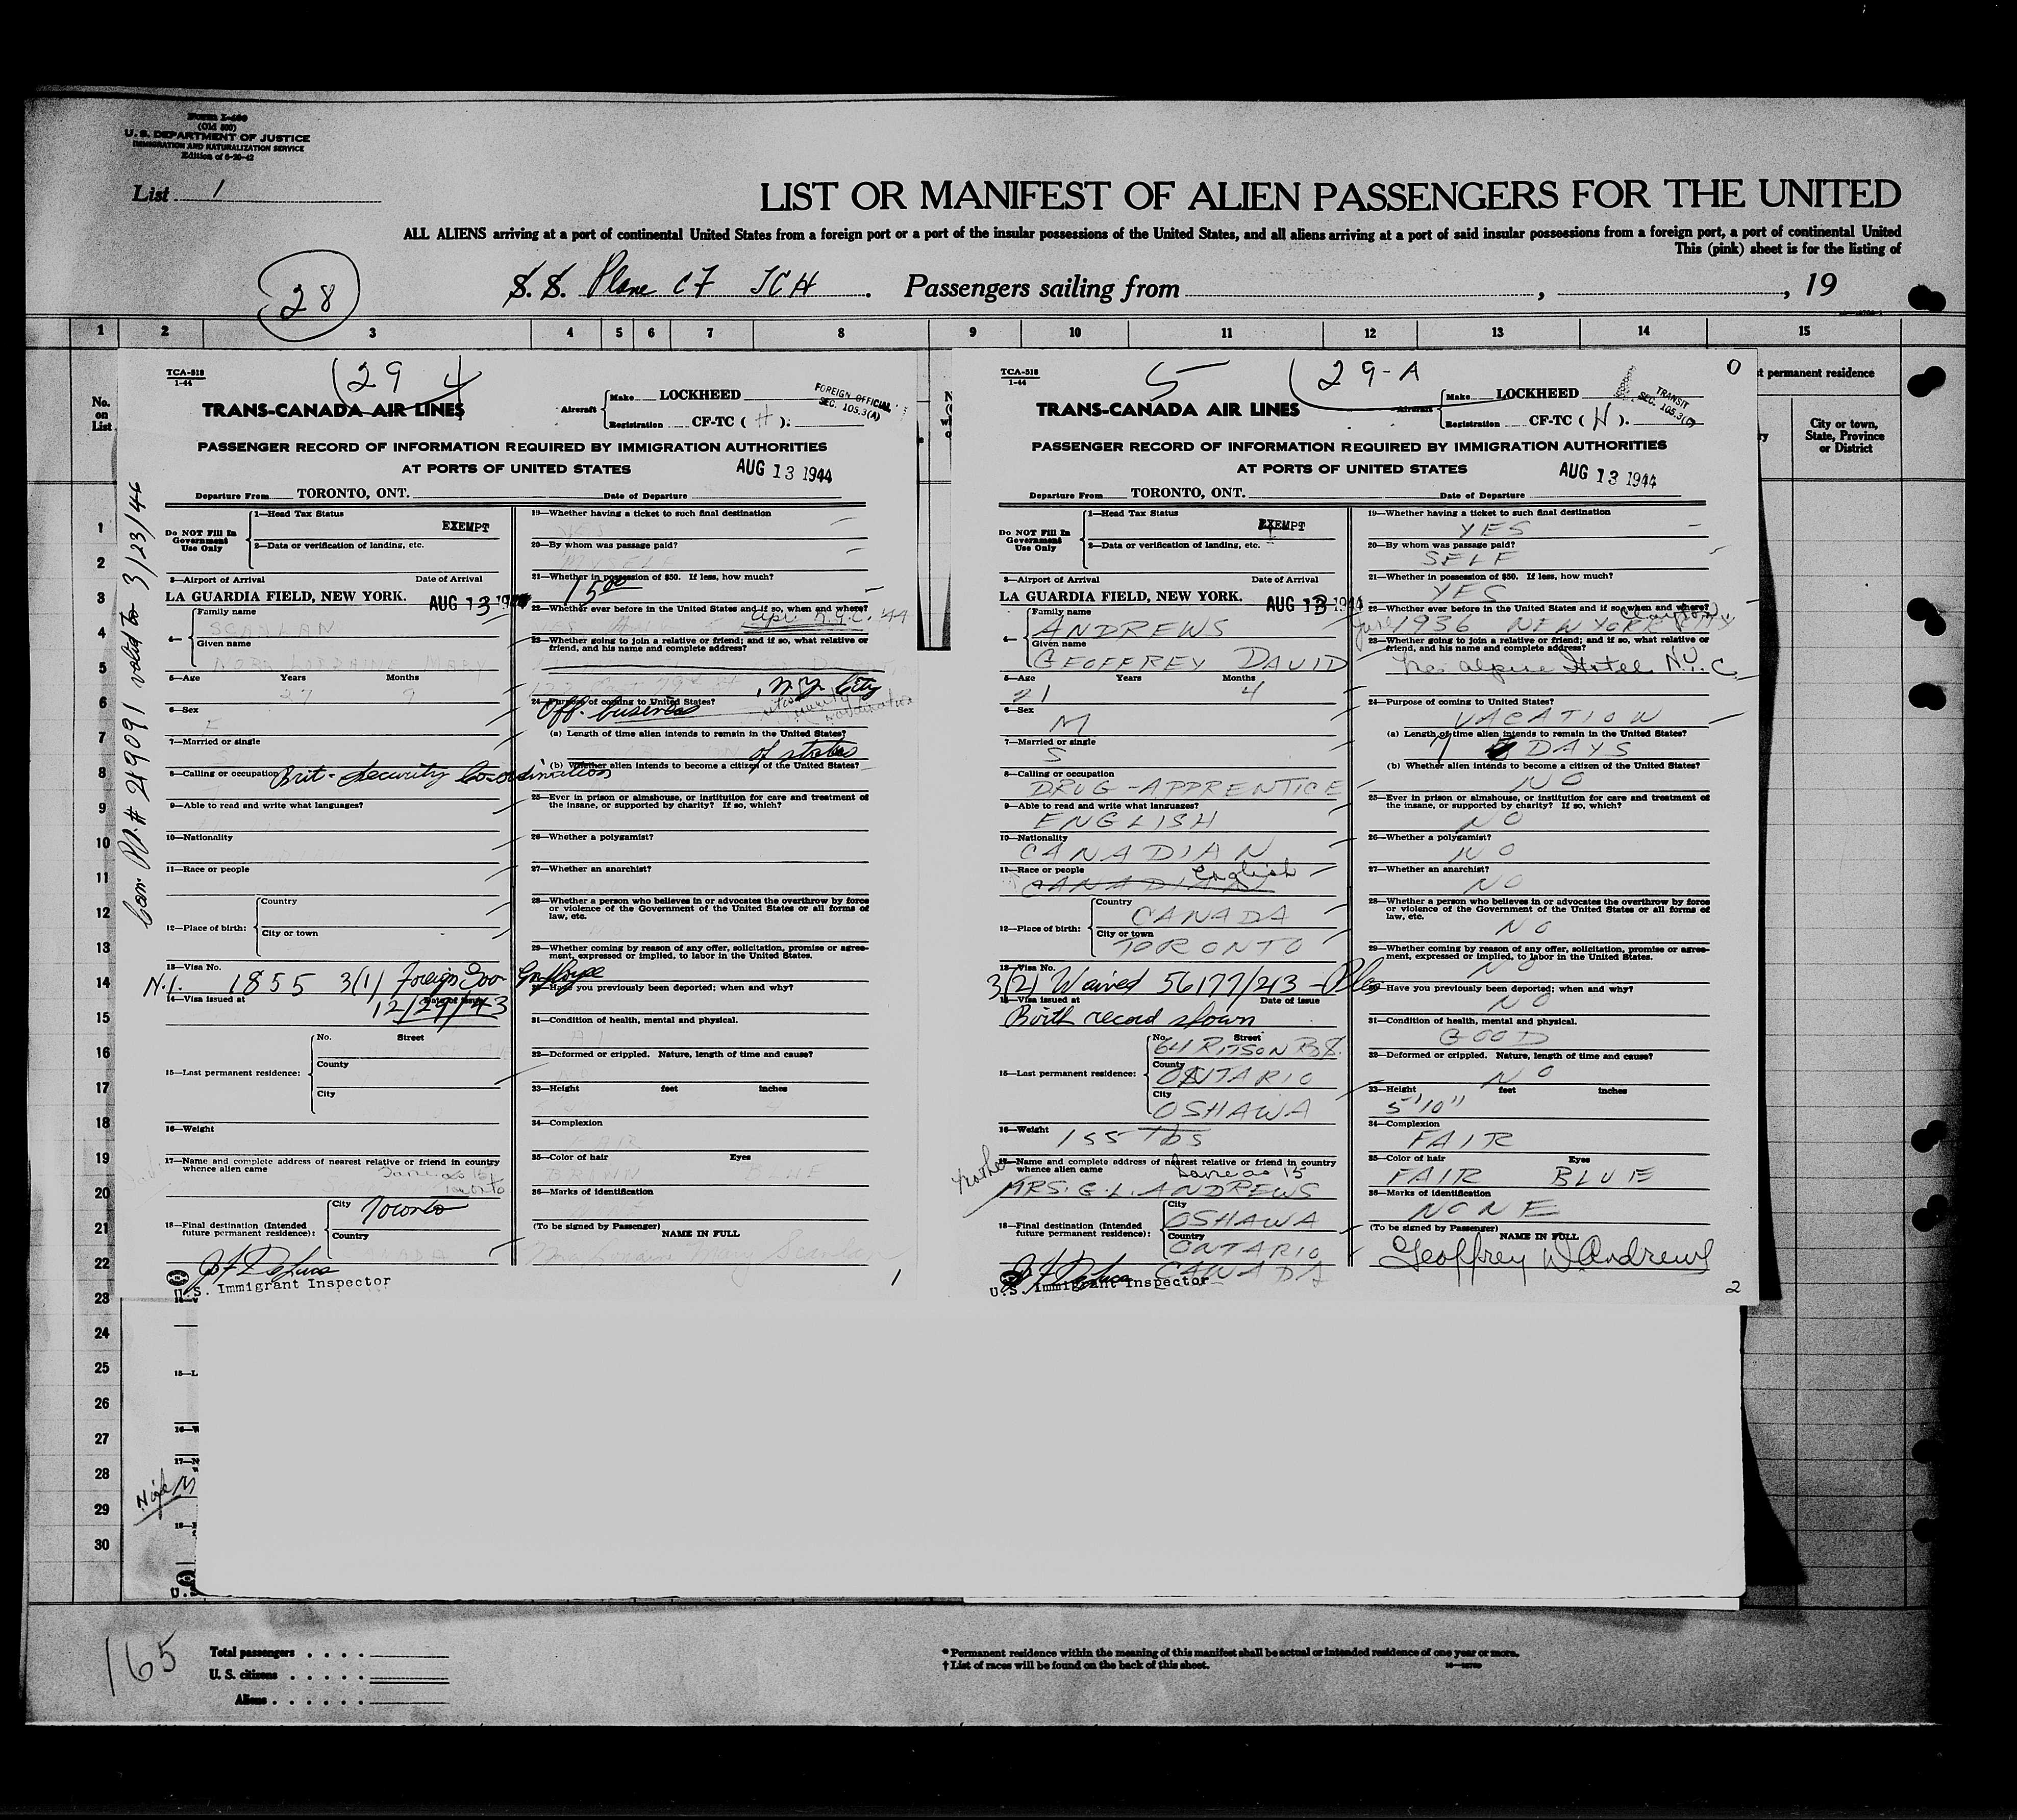 Form I-480
(Old 500)
U. S. DEPARTMENT OF JUSTICE
IMMIGRATION AND NATURALIZATION SERVICE
Edition of 6-20-42
List 1
LIST OR MANIFEST OF ALIEN PASSENGERS FOR THE UNITED
ALL ALIENS arriving at a port of continental United States from a foreign port or a port of the insular possessions of the United States, and all aliens arriving at a port of said insular possessions from a foreign port, a port of continental United
This (pink) sheet is for the listing of
28
S. S. Plane CF TCH . Passengers sailing from , , 19
1 2 3 4 5 6 7 8 9 10 11 12 13 14 15
No. on List
t permanent residence
City or town, State, Province or District
1
2
3
4
5
6
7
8
9
10
11
12
13
14
15
16
17
18
19
20
21
22
23
24
25
26
27
28
29
30
Can. PP. # 249091 valid to 3/23/46
TCA-518
1-44
29 4
TRANS-CANADA AIR LINES
Aircraft Make LOCKHEED
Registration CF-TC ( H ).
FOREIGN OFFICIAL
SEC. 105.3(A)
PASSENGER RECORD OF INFORMATION REQUIRED BY IMMIGRATION AUTHORITIES
AT PORTS OF UNITED STATES
AUG 13 1944
Departure From TORONTO, ONT. Date of Departure
Do NOT Fill In
Government
Use Only
1—Head Tax Status
EXEMPT
2—Data or verification of landing, etc.
3—Airport of Arrival Date of Arrival
LA GUARDIA FIELD, NEW YORK. AUG 13 1944
4— Family name
SCANLAN
Given name
MARY
5—Age Years Months
27 9
6—Sex
F
7—Married or single
8—Calling or occupation Brit- Security Coordination
9—Able to read and write what languages?
10—Nationality
11—Race or people
12—Place of birth: Country
City or town
13—Visa No.
N.I. 1855 3(1) Foreign Gov Employee
14—Visa issued at Date of issue
12/29/43
15—Last permanent residence: No. Street
County
City
16—Weight
17—Name and complete address of nearest relative or friend in country
whence alien came
Same as 15
Toronto
18—Final destination (Intended
future permanent residence): City
Toronto
Country
CANADA
U.S. Immigrant Inspector
19—Whether having a ticket to such final destination
20—By whom was passage paid?
21—Whether in possession of $50. If less, how much?
22—Whether ever before in the United States and if so, when and where?
N.Y.C. 44
23—Whether going to join a relative or friend; and if so, what relative or
friend, and his name and complete address?
, N.Y. City
24—Purpose of coming to United States?
Off. business
(a) Length of time alien intends to remain in the United States?
of status
(b) Whether alien intends to become a citizen of the United States?
25—Ever in prison or almshouse, or institution for care and treatment of
the insane, or supported by charity? If so, which?
26—Whether a polygamist?
27—Whether an anarchist?
28—Whether a person who believes in or advocates the overthrow by force
or violence of the Government of the United States or all forms of
law, etc.
29—Whether coming by reason of any offer, solicitation, promise or agree-
ment, expressed or implied, to labor in the United States.
30—Have you previously been deported; when and why?
31—Condition of health, mental and physical.
A1
32—Deformed or crippled. Nature, length of time and cause?
33—Height feet inches
34—Complexion
FAIR
35—Color of hair Eyes
BROWN BLUE
36—Marks of identification
(To be signed by Passenger) NAME IN FULL
1
TCA-518
1-44
5 29-A
0
TRANS-CANADA AIR LINES
Aircraft Make LOCKHEED
Registration CF-TC ( H ).
TRANSIT
SEC. 105.3(
PASSENGER RECORD OF INFORMATION REQUIRED BY IMMIGRATION AUTHORITIES
AT PORTS OF UNITED STATES
AUG 13 1944
Departure From TORONTO, ONT. Date of Departure
Do NOT Fill In
Government
Use Only
1—Head Tax Status
EXEMPT
2—Data or verification of landing, etc.
3—Airport of Arrival Date of Arrival
LA GUARDIA FIELD, NEW YORK. AUG 13 1944
4— Family name
ANDREWS
Given name
GEOFFREY DAVID
5—Age Years Months
21 4
6—Sex
M
7—Married or single
S
8—Calling or occupation
DRUG-APPRENTICE
9—Able to read and write what languages?
ENGLISH
10—Nationality
CANADIAN
11—Race or people English
CANADIAN
12—Place of birth: Country
CANADA
City or town
TORONTO
13—Visa No.
3(2) Waived 56177/243
14—Visa issued at Date of issue
Birth record shown
15—Last permanent residence: No. Street
64 RITSON RD S.
County
ONTARIO
City
OSHAWA
16—Weight 155 lbs
17—Name and complete address of nearest relative or friend in country
whence alien came Same as 15
Mother
MRS. G. L. ANDREWS
18—Final destination (Intended
future permanent residence): City
OSHAWA
Country
ONTARIO
CANADA
U.S. Immigrant Inspector
19—Whether having a ticket to such final destination
YES
20—By whom was passage paid?
SELF
21—Whether in possession of $50. If less, how much?
YES
22—Whether ever before in the United States and if so, when and where?
June 1936 NEW YORK CITY
23—Whether going to join a relative or friend; and if so, what relative or
friend, and his name and complete address?
no. Alpine Hotel N.Y.C.
24—Purpose of coming to United States?
VACATION
(a) Length of time alien intends to remain in the United States?
7 DAYS
(b) Whether alien intends to become a citizen of the United States?
NO
25—Ever in prison or almshouse, or institution for care and treatment of
the insane, or supported by charity? If so, which?
NO
26—Whether a polygamist?
NO
27—Whether an anarchist?
NO
28—Whether a person who believes in or advocates the overthrow by force
or violence of the Government of the United States or all forms of
law, etc.
NO
29—Whether coming by reason of any offer, solicitation, promise or agree-
ment, expressed or implied, to labor in the United States.
NO
30—Have you previously been deported; when and why?
NO
31—Condition of health, mental and physical.
GOOD
32—Deformed or crippled. Nature, length of time and cause?
NO
33—Height feet inches
5'10"
34—Complexion
FAIR
35—Color of hair Eyes
FAIR BLUE
36—Marks of identification
NONE
(To be signed by Passenger) NAME IN FULL
Geoffrey D Andrews
2
165
Total passengers
U. S. citizens
Aliens
* Permanent residence within the meaning of this manifest shall be actual or intended residence of one year or more.
† List of races will be found on the back of this sheet.